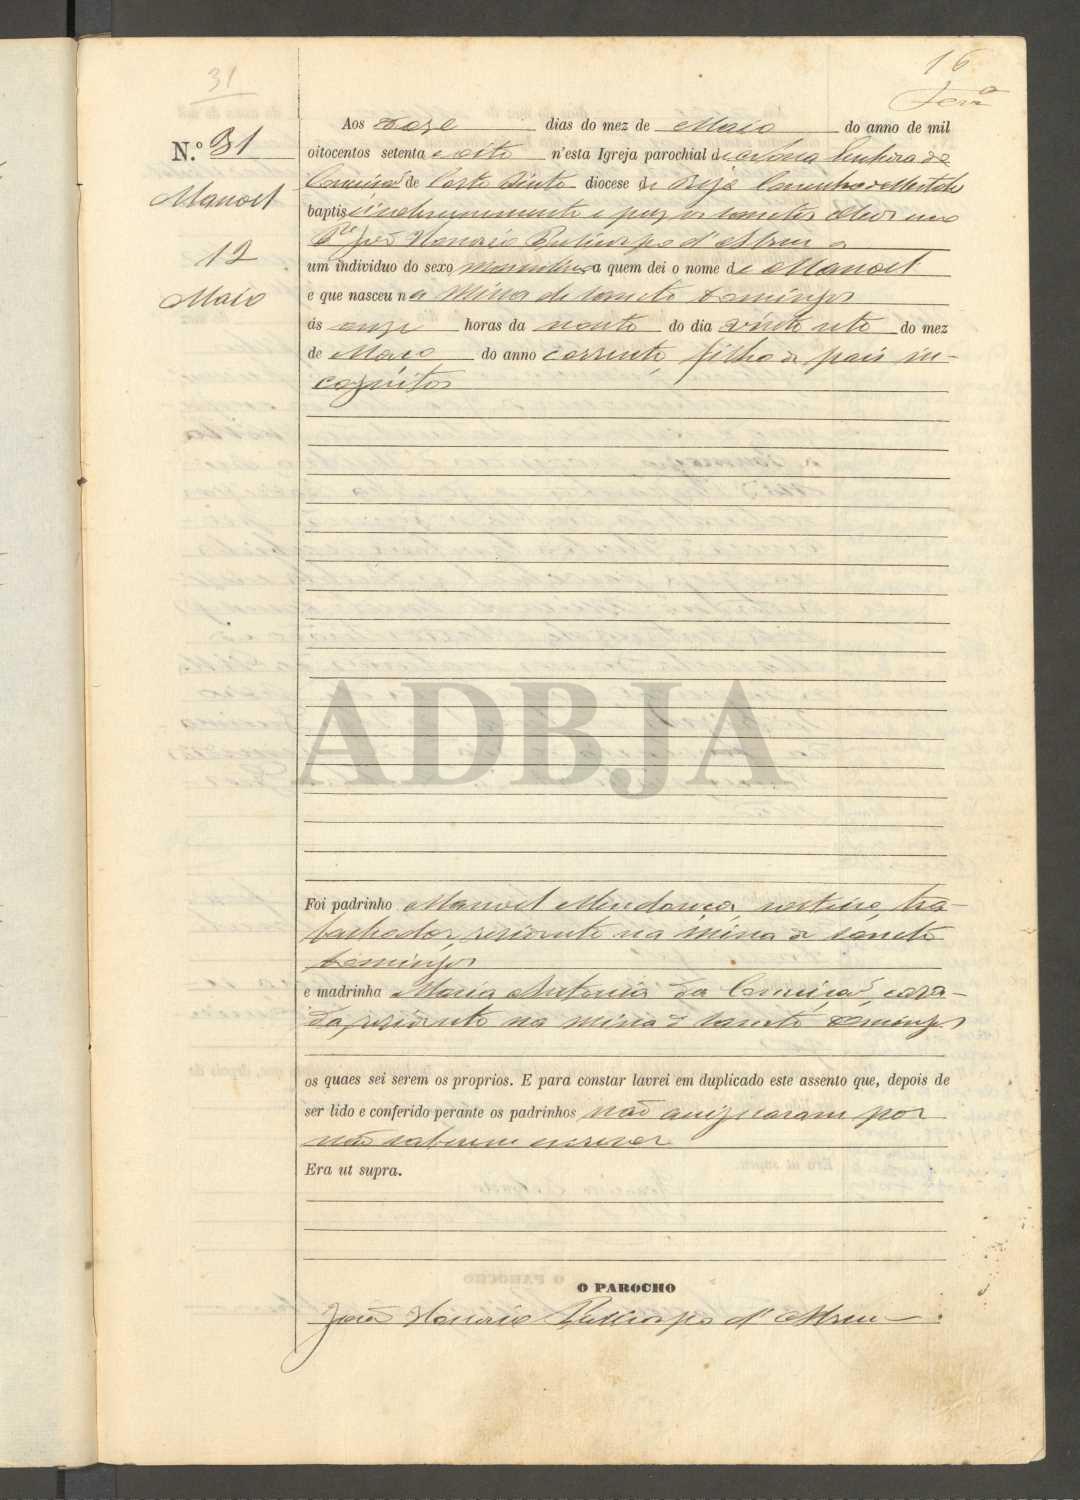 16
Ferrª
31
N.º 31
Manoel
12
Maio
Aos doze dias do mez de Maio do anno de mil
oitocentos setenta e oito n'esta Igreja parochial de Nossa Senhora da
Conceição de Corte Pinto diocese de Beja Concelho de Mertola
baptisei solemnemente e puz os sanctos oleos eu
Pe João Honorio Policarpo d'Abreu a
um individuo do sexo masculino a quem dei o nome de Manoel
e que nasceu na Mina de sancto Domingos
ás onze horas da noute do dia do mez
de Maio do anno corrente, filho de pais in-
cognitos
ADBJA
Foi padrinho Manoel Mendonça, solteiro, tra-
balhador, residente na mina de sancto
Domingos
e madrinha Maria Antonia da Conceição, casa-
da, residente na mina de sancto Domingos
os quaes sei serem os proprios. E para constar lavrei em duplicado este assento que, depois de
ser lido e conferido perante os padrinhos não assignaram por
não saberem escrever
Era ut supra.
O PAROCHO
João Honorio Policarpo d'Abreu